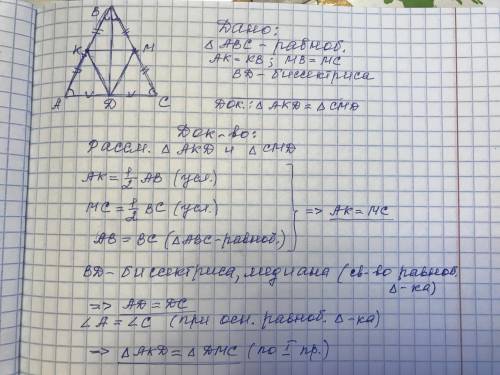 B
K
M
A
D
C
Дано:
△ABC - равноб.
AK = KB; MB = MC
BD - биссектриса
Док.: △AKD = △CMD
Док-во:
Рассм. △AKD и △CMD
AK = 1/2 AB (усл.)
MC = 1/2 BC (усл.)
AB = BC (△ABC - равноб.)
=> AK = MC
BD - биссектриса, медиана (св-во равноб.
△-ка)
=> AD = DC
∠A = ∠C (при осн. равноб. △-ка)
=> △AKD = △DMC (по I пр.)